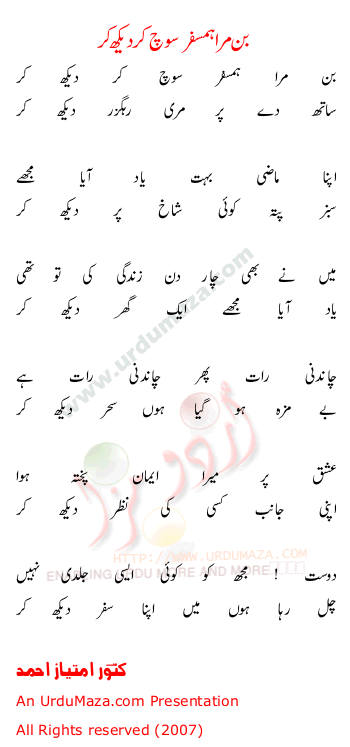 بن مرا ہمسفر سوچ کر دیکھ کر
بن مرا ہمسفر سوچ کر دیکھ کر
ساتھ دے پر مری رہگزر دیکھ کر
اپنا ماضی بہت یاد آیا مجھے
سبز پتہ کوئی شاخ پر دیکھ کر
میں نے بھی چار دن زندگی کی تو تھی
یاد آیا مجھے ایک گھر دیکھ کر
www.urdumaza.com
چاندنی رات پھر چاندنی رات ہے
بے مزہ ہو گیا ہوں سحر دیکھ کر
اُردو مزا
عشق پر میرا ایمان پختہ ہوا
اپنی جانب کسی کی نظر دیکھ کر
HTTP://WWW.URDUMAZA.COM
URDU MORE AND MORE
دوست ! مجھ کو کوئی ایسی جلدی نہیں
چل رہا ہوں میں اپنا سفر دیکھ کر
کنور امتیاز احمد
An UrduMaza.com Presentation
All Rights reserved (2007)